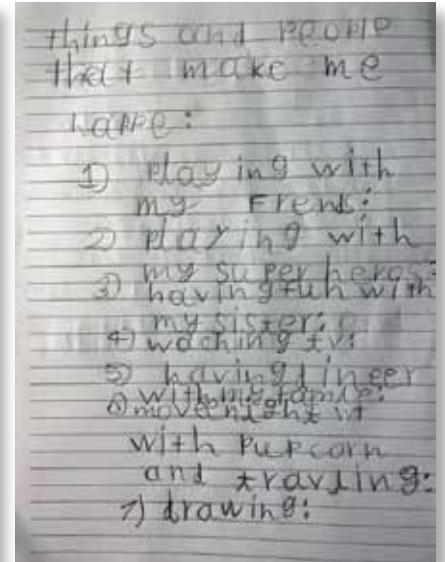 things and PeoPle
that make me
haPPe:
1) Playing with
my Frends:
2) Playing with
my super heros:
3) having fun with
my sister:
4) waching tv:
5) having dineer
with my famle:
6) movee night
with PuPcorn
and travling:
7) drawing: